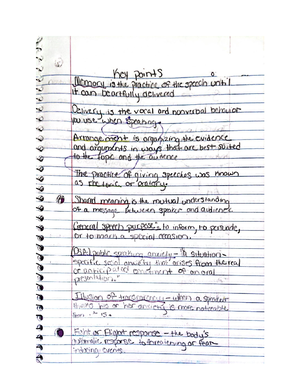 Key points
Memory is the practice of the speech until
it can be artfully delivered
Delivery is the vocal and nonverbal behavior
you use when speaking.
Arrangement is organizing the evidence
and arguments in ways that are best suited
to the topic and the audience
The practice of giving speeches was known
as rhetoric or oratory.
Shared meaning is the mutual understanding
of a message between speaker and audience.
General speech purpose - to inform, to persuade,
or to mark a special occasion.
(PSA) public speaking anxiety - "A situation-
specific social anxiety that arises from the real
or anticipated enactment of an oral
presentation."
Illusion of transparency - when a speaker
thinks his or her anxiety is more noticeable
than it is.
Fight or Flight response - the body's
automatic response to threatening or fear-
inducing events.